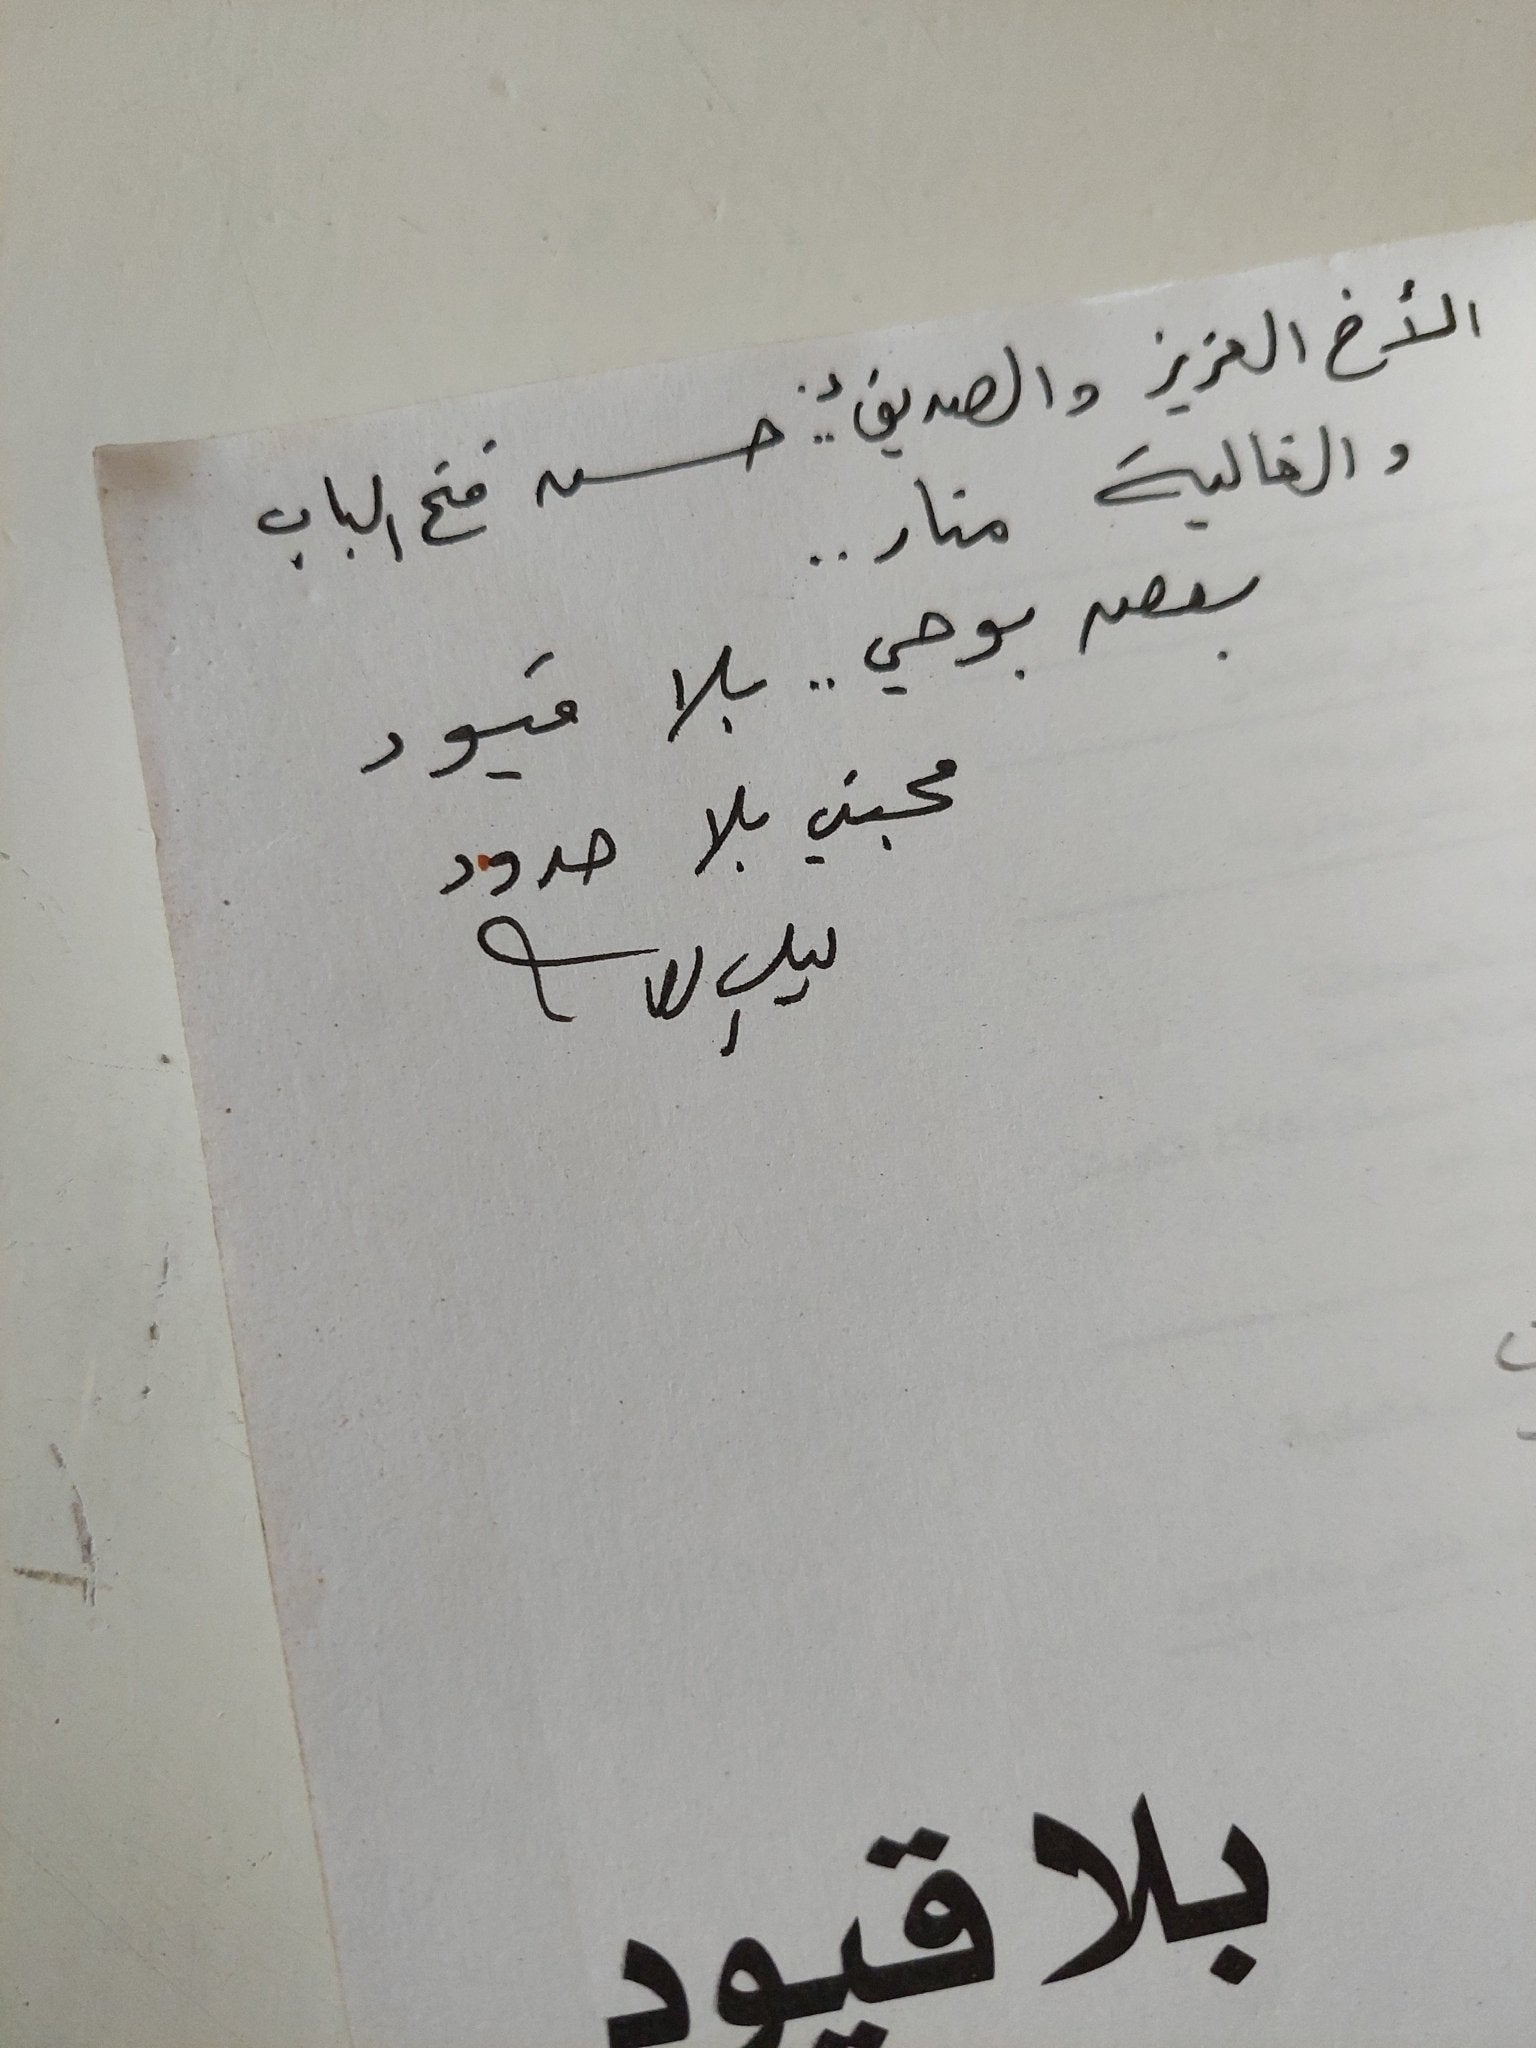 الأخ العزيز والصديق د. حسن فتح الباب
والغالية منار ..
بعض بوحي .. بلا قيود
محبتي بلا حدود
بلا قيود